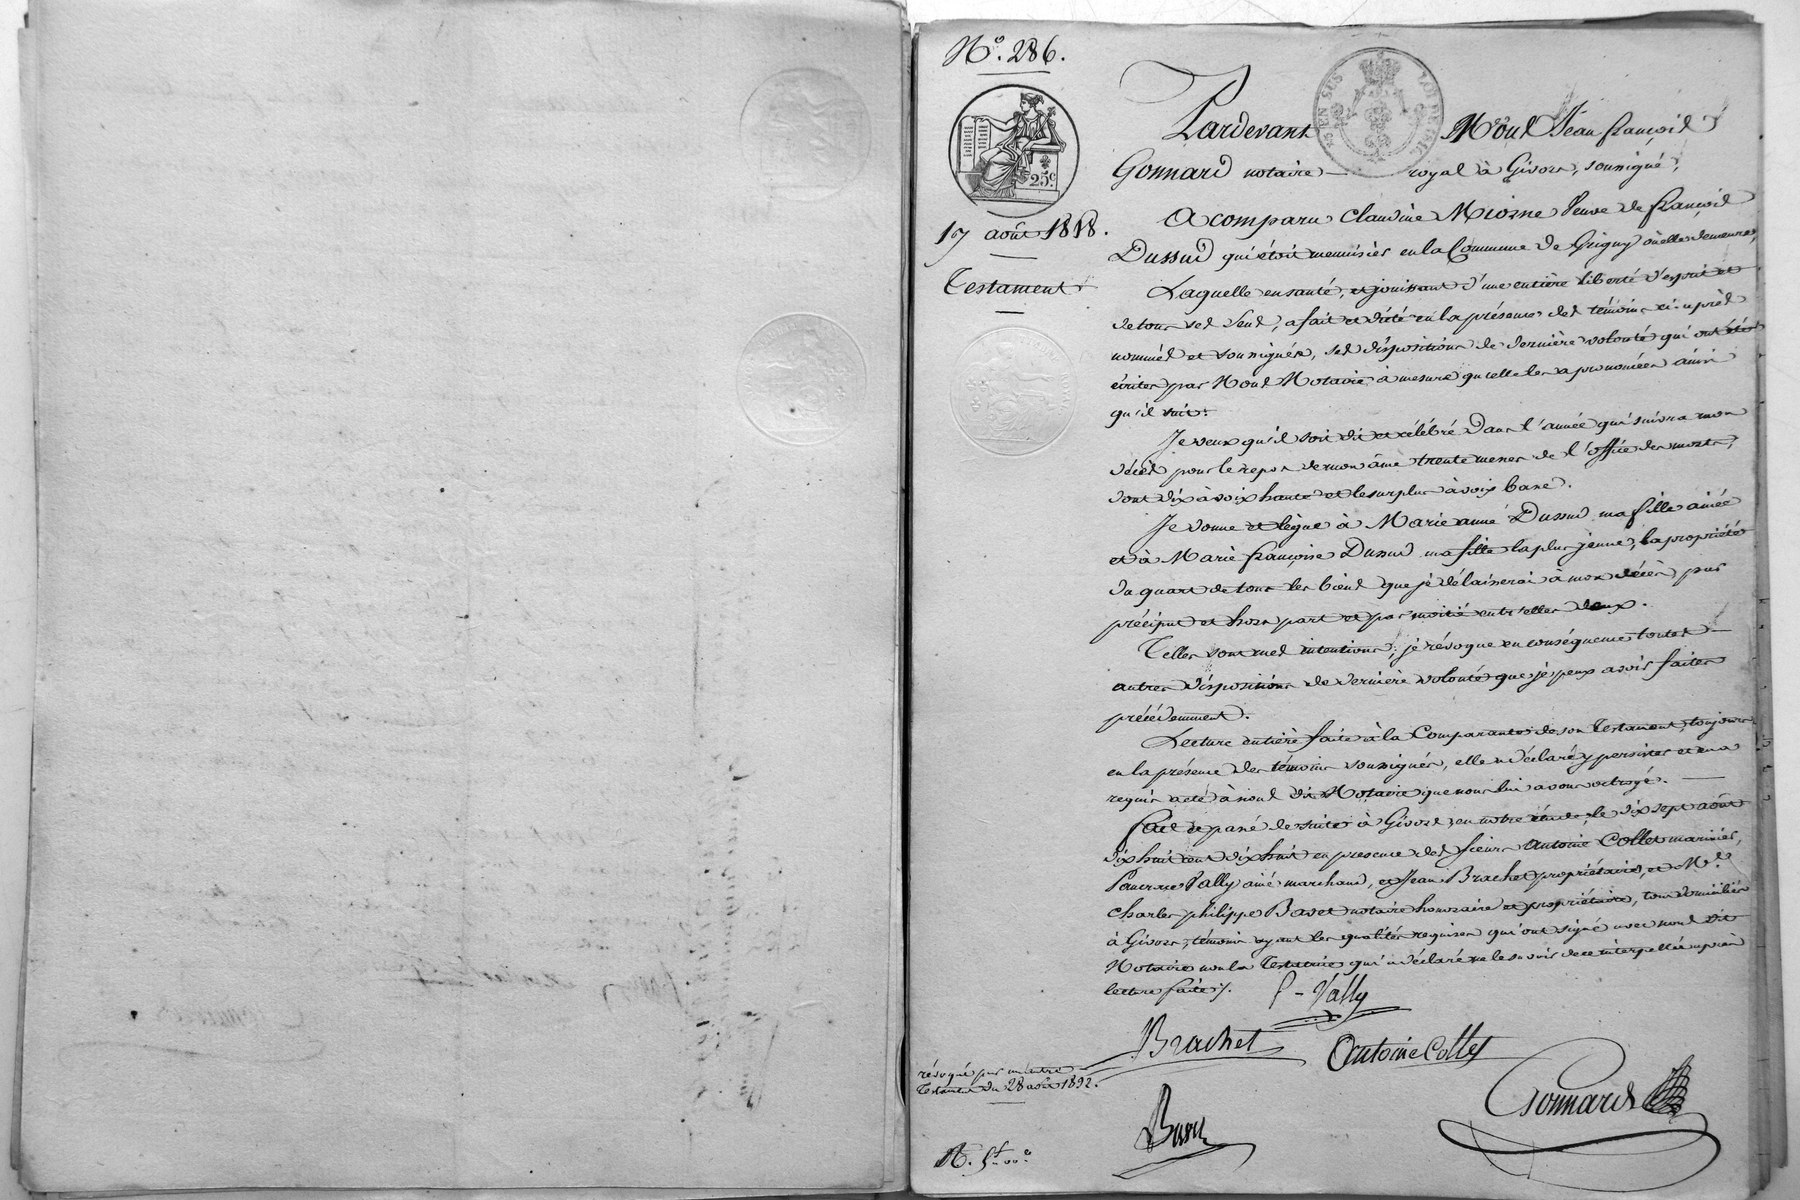 N.º 286.
25.c
17 août 1818.
Testament
EN SUS
LOI DE 1816
Pardevant Nous Jean françois
Gonnard notaire royal à Givors, soussigné,
A comparu Claudine Miosne Veuve de françois
Dussud qui étoit menuisier en la Commune de Grigny où elle demeure,
Laquelle en santé, et jouissant d'une entière liberté d'esprit et
de tous ses sens, a fait et dicté en la présence des témoins ci-après
nommés et soussignés, ses dispositions de dernière volonté qui ont été
écrites par Nous Notaire à mesure qu'elle les a prononcées ainsi
qu'il suit:
Je veux qu'il soit dit et célébré dans l'année qui suivra mon
décès pour le repos de mon âme trente messes de l'office des morts,
dont dix à voix haute et le surplus à voix basse.
Je donne et lègue à Marie anne Dussud ma fille ainée
et à Marie françoise Dussud ma fille la plus jeune, la propriété
du quart de tous les biens que je délaisserai à mon décès, par
préciput et hors part et par moitié entr'elles deux.
Telles sont mes intentions; je révoque en conséquence toutes
autres dispositions de dernière volonté que je peux avoir faites
précédemment.
Lecture entière faite à la Comparante de son Testament, toujours
en la présence des témoins soussignés, elle a déclaré y persister et en a
requis acte à nous dit Notaire que nous lui avons octroyé.
fait et passé de suite à Givors, en notre étude, le dix sept août
dix huit cent dix huit en presence des sieurs Antoine Collet marinier,
Pancrace Vally ainé marchand, et Jean Brachet propriétaire, et Mr.
Charles philippe Bavet notaire honoraire et propriétaire, tous domiciliés
à Givors, témoins ayant les qualités requises qui ont signé avec nous dit
Notaire non la Testatrice qui a déclaré ne le savoir de ce interpellée après
lecture faite ./.
P - Vally
Brachet
Antoine Collet
révoqué par un autre
Testament du 28 août 1832.
Gonnard